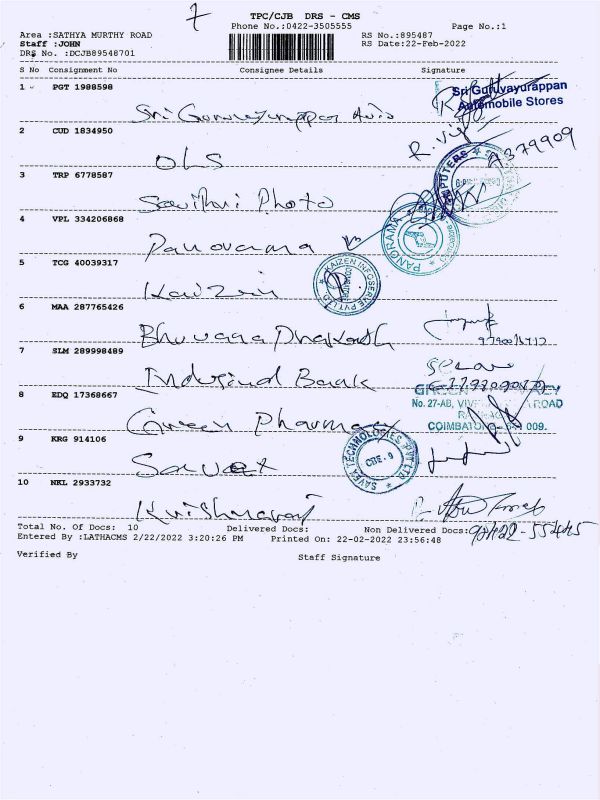 7
TPC/CJB DRS - CMS
Phone No.:0422-3505555 Page No.:1
Area :SATHYA MURTHY ROAD RS No.:895487
Staff :JOHN RS Date:22-Feb-2022
DRS No. :DCJB89548701
S No Consignment No Consignee Details Signature
1 PGT 1988598
Sri Guruvayurappan
Automobile Stores
Sri Guruvayurappa Auto
2 CUD 1834950
OLS
R.
A379909
3 TRP 6778587
Savithri Photo
COMPUTERS
4 VPL 334206868
Panorama
PANORAMA
5 TCG 40039317
Kaizen
KAIZEN INFOSERVE PVT LTD
6 MAA 287765426
Bhuvana Prakash
7 SLM 289998489
Indusind Baak
8 EDQ 17368667
GREEN
No. 27-AB, ROAD
COIMBATORE 009.
Green Pharmacy
9 KRG 914106
Saveat
SAVEA TECHNOLOGIES PVT LTD
CBE - 9
10 NKL 2933732
Krishnaraj
Total No. Of Docs: 10 Delivered Docs: Non Delivered Docs:
Entered By :LATHACMS 2/22/2022 3:20:26 PM Printed On: 22-02-2022 23:56:48
Verified By Staff Signature